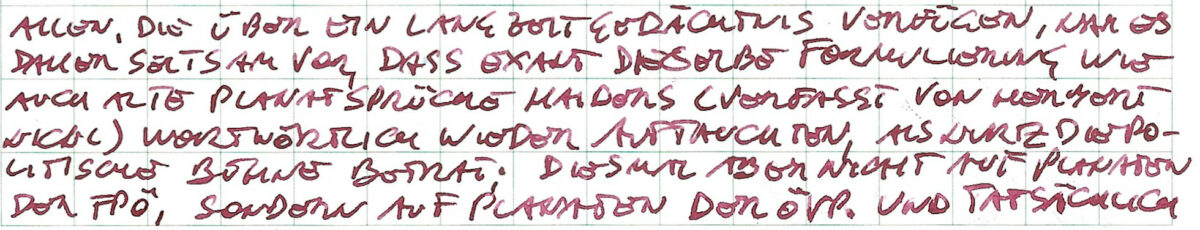 ALLEN, DIE ÜBER EIN LANGZEITGEDÄCHTNIS VERFÜGEN, KAM ES
DAHER SELTSAM VOR, DASS EXAKT DIESELBE FORMULIERUNG WIE
AUCH ALTE PLAKATSPRÜCHE HAIDERS (VERFASST VON HERBERT
KICKL) WORTWÖRTLICH WIEDER AUFTAUCHTEN, ALS KURZ DIE PO-
LITISCHE BÜHNE BETRAT. DIESMAL ABER NICHT AUF PLAKATEN
DER FPÖ, SONDERN AUF PLAKATEN DER ÖVP. UND TATSÄCHLICH